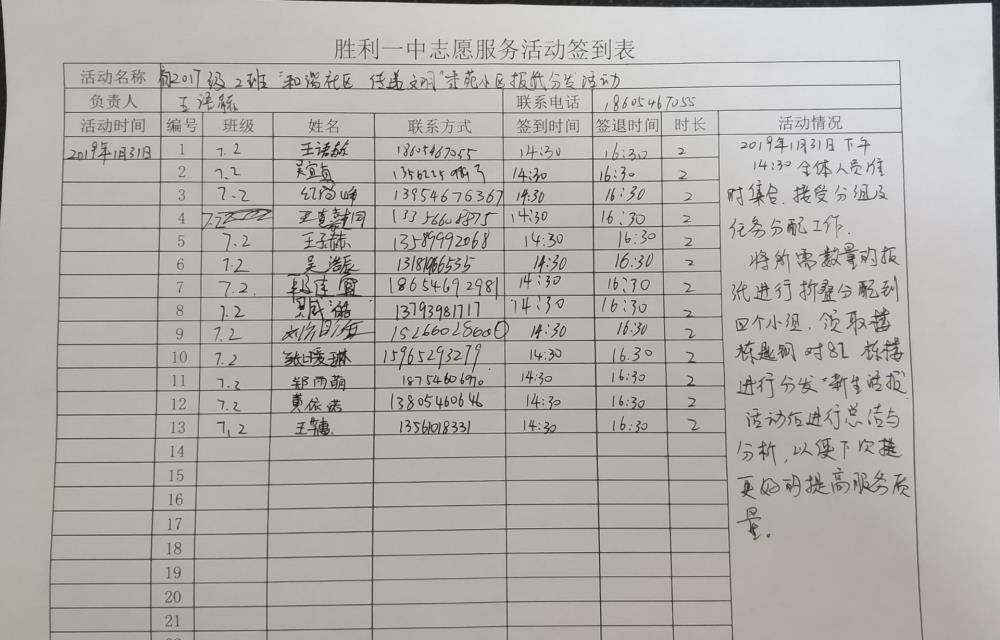 胜利一中志愿服务活动签到表
活动名称 2017级2班"和谐社区 传递文明"小区报纸分发活动
负责人 王语 联系电话 18605467055
活动时间 编号 班级 姓名 联系方式 签到时间 签退时间 时长 活动情况
2019年1月31日 1 7.2 王语 18605467055 14:30 16:30 2
2 7.2 吴宜真 14:30 16:30 2
3 7.2 13954676367 14:30 16:30 2
4 7.2 14:30 16:30 2
5 7.2 王子赫 13589992068 14:30 16:30 2
6 7.2 吴浩辰 14:30 16:30 2
7 7.2 18654692981 14:30 16:30 2
8 7.2 13793981717 14:30 16:30 2
9 7.2 14:30 16:30 2
10 7.2 张瑷琳 15965293279 14:30 16.30 2
11 7.2 郑雨萌 14:30 16:30 2
12 7.2 黄依诺 13805460646 14:30 16:30 2
13 7,2 王 14:30 16:30 2
14
15
16
17
18
19
20
21
2019年1月31日下午
14:30全体人员准
时集合,接受分组及
任务分配工作.
将所需数量的报
纸进行折叠分配到
四个小组,领取楼
栋匙钥对81栋楼
进行分发"新生活报"
活动后进行总结与
分析,以便下次能
更好的提高服务质
量。